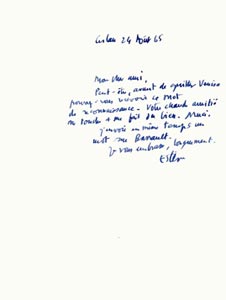 24 Août 65
Mon cher ami,
Peut-être, avant de quitter Venise
pourrez-vous recevoir ce mot
de reconnaissance. Votre chaude amitié
me touche et me fait du bien. Merci.
J'envoie en même temps un
mot
Je vous embrasse, longuement.